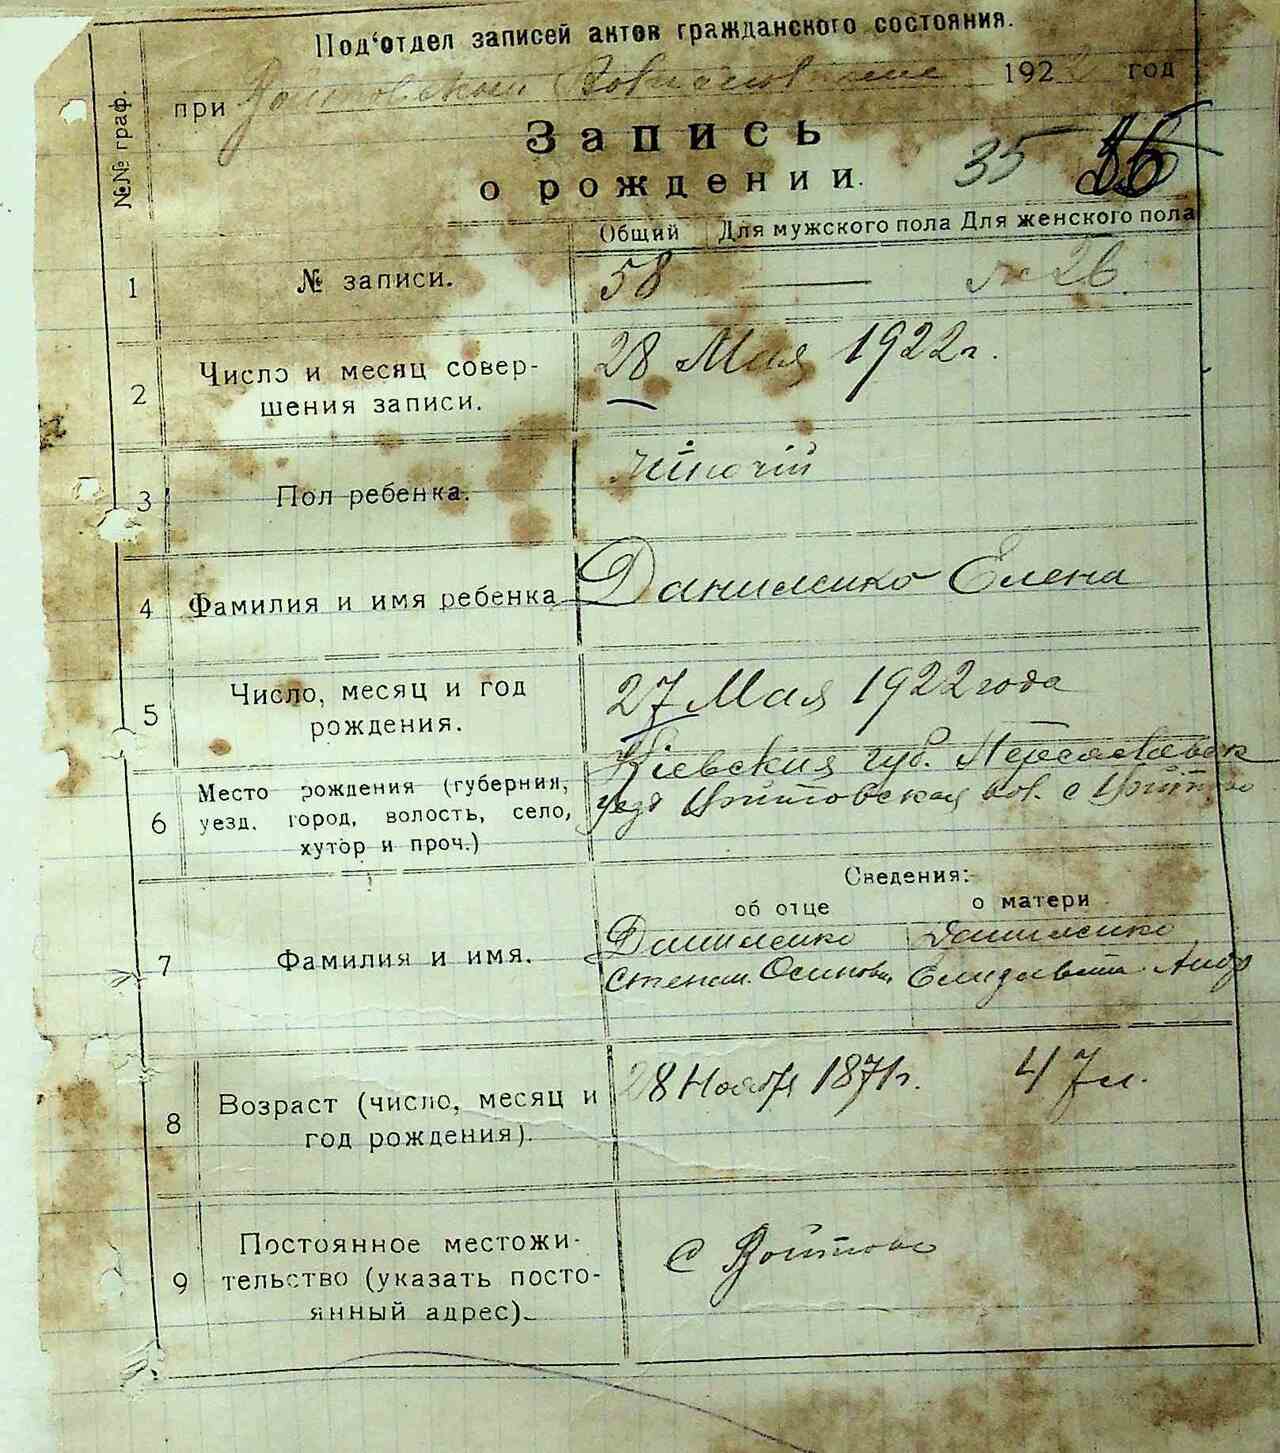 Под‘отдел записей актов гражданского состояния.
при Войтовском 192 год
Запись
о рождении. 35
№№ граф.
Общий Для мужского пола Для женского пола
1 № записи. 58 — № 26
2 Число и месяц совер- 28 Мая 1922 г.
шения записи.
3 Пол ребенка. жіночій
4 Фамилия и имя ребенка Даниленко Елена
5 Число, месяц и год 27 Мая 1922 года
рождения.
6 Место рождения (губерния, Кіевския губ. Переяславск
уезд, город, волость, село, уезд Войтовская вол. с Войтово
хутор и проч.)
Сведения:
об отце о матери
7 Фамилия и имя. Даниленко Даниленко
Степан Осипов Елизавета Андр
8 Возраст (число, месяц и 28 Ноября 1871 г. 47 л.
год рождения).
9 Постоянное местожи- с Войтово
тельство (указать посто-
янный адрес).